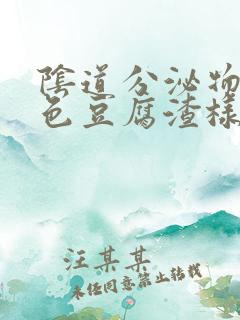 陰道分泌物
色豆腐渣樣
汪某某
未经同意禁止转载